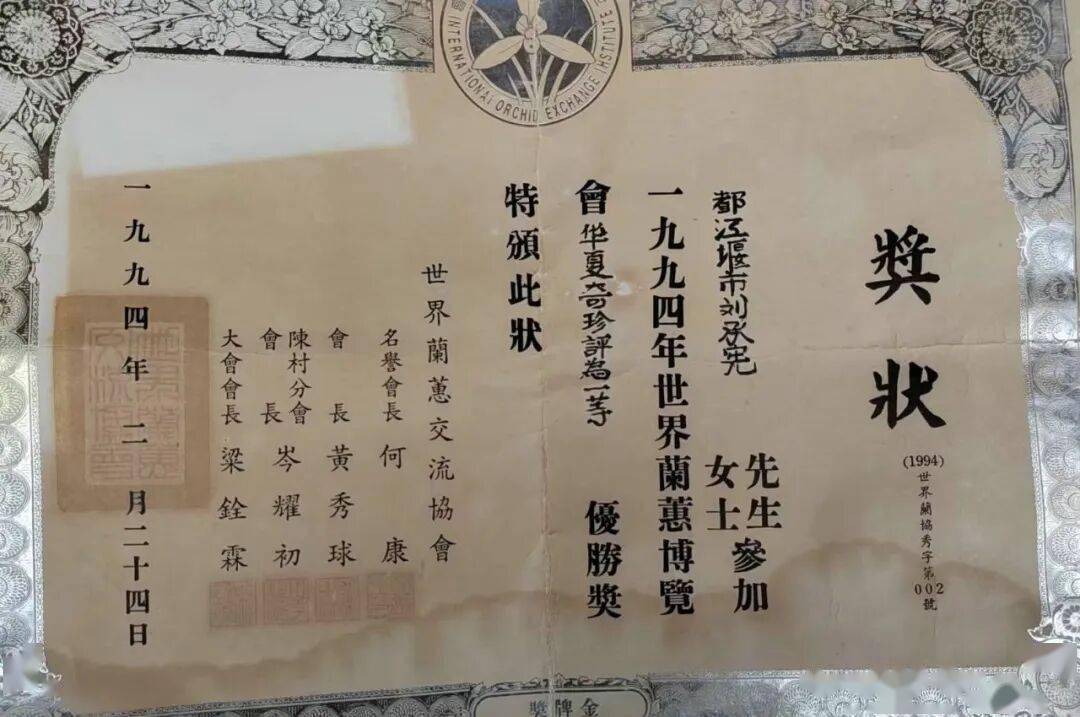 INTERNATIONAL ORCHID EXCHANGE INSTITUTE
獎狀
(1994)世界蘭協秀字第002號
都江堰市刘承宪
先生
女士
參加
一九九四年世界蘭蕙博覽
會华夏奇珍評為一等優勝獎
特頒此狀
世界蘭蕙交流協會
名譽會長何康
會長黃秀球
陳村分會
會長
岑耀初
大會會長梁銓霖
一九九四年二月二十四日
金牌獎